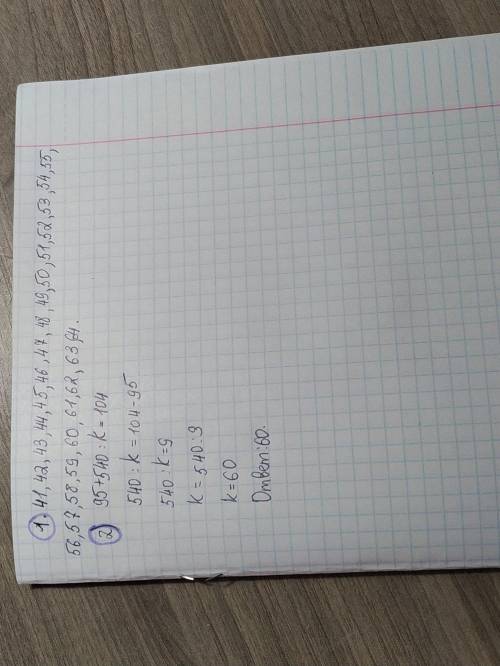 1. 41, 42, 43, 44, 45, 46, 47, 48, 49, 50, 51, 52, 53, 54, 55,
56, 57, 58, 59, 60, 61, 62, 63, 64.
2) 95+540:к=104
540:к=104-95
540:к=9
к=540:9
к=60
Ответ:60.